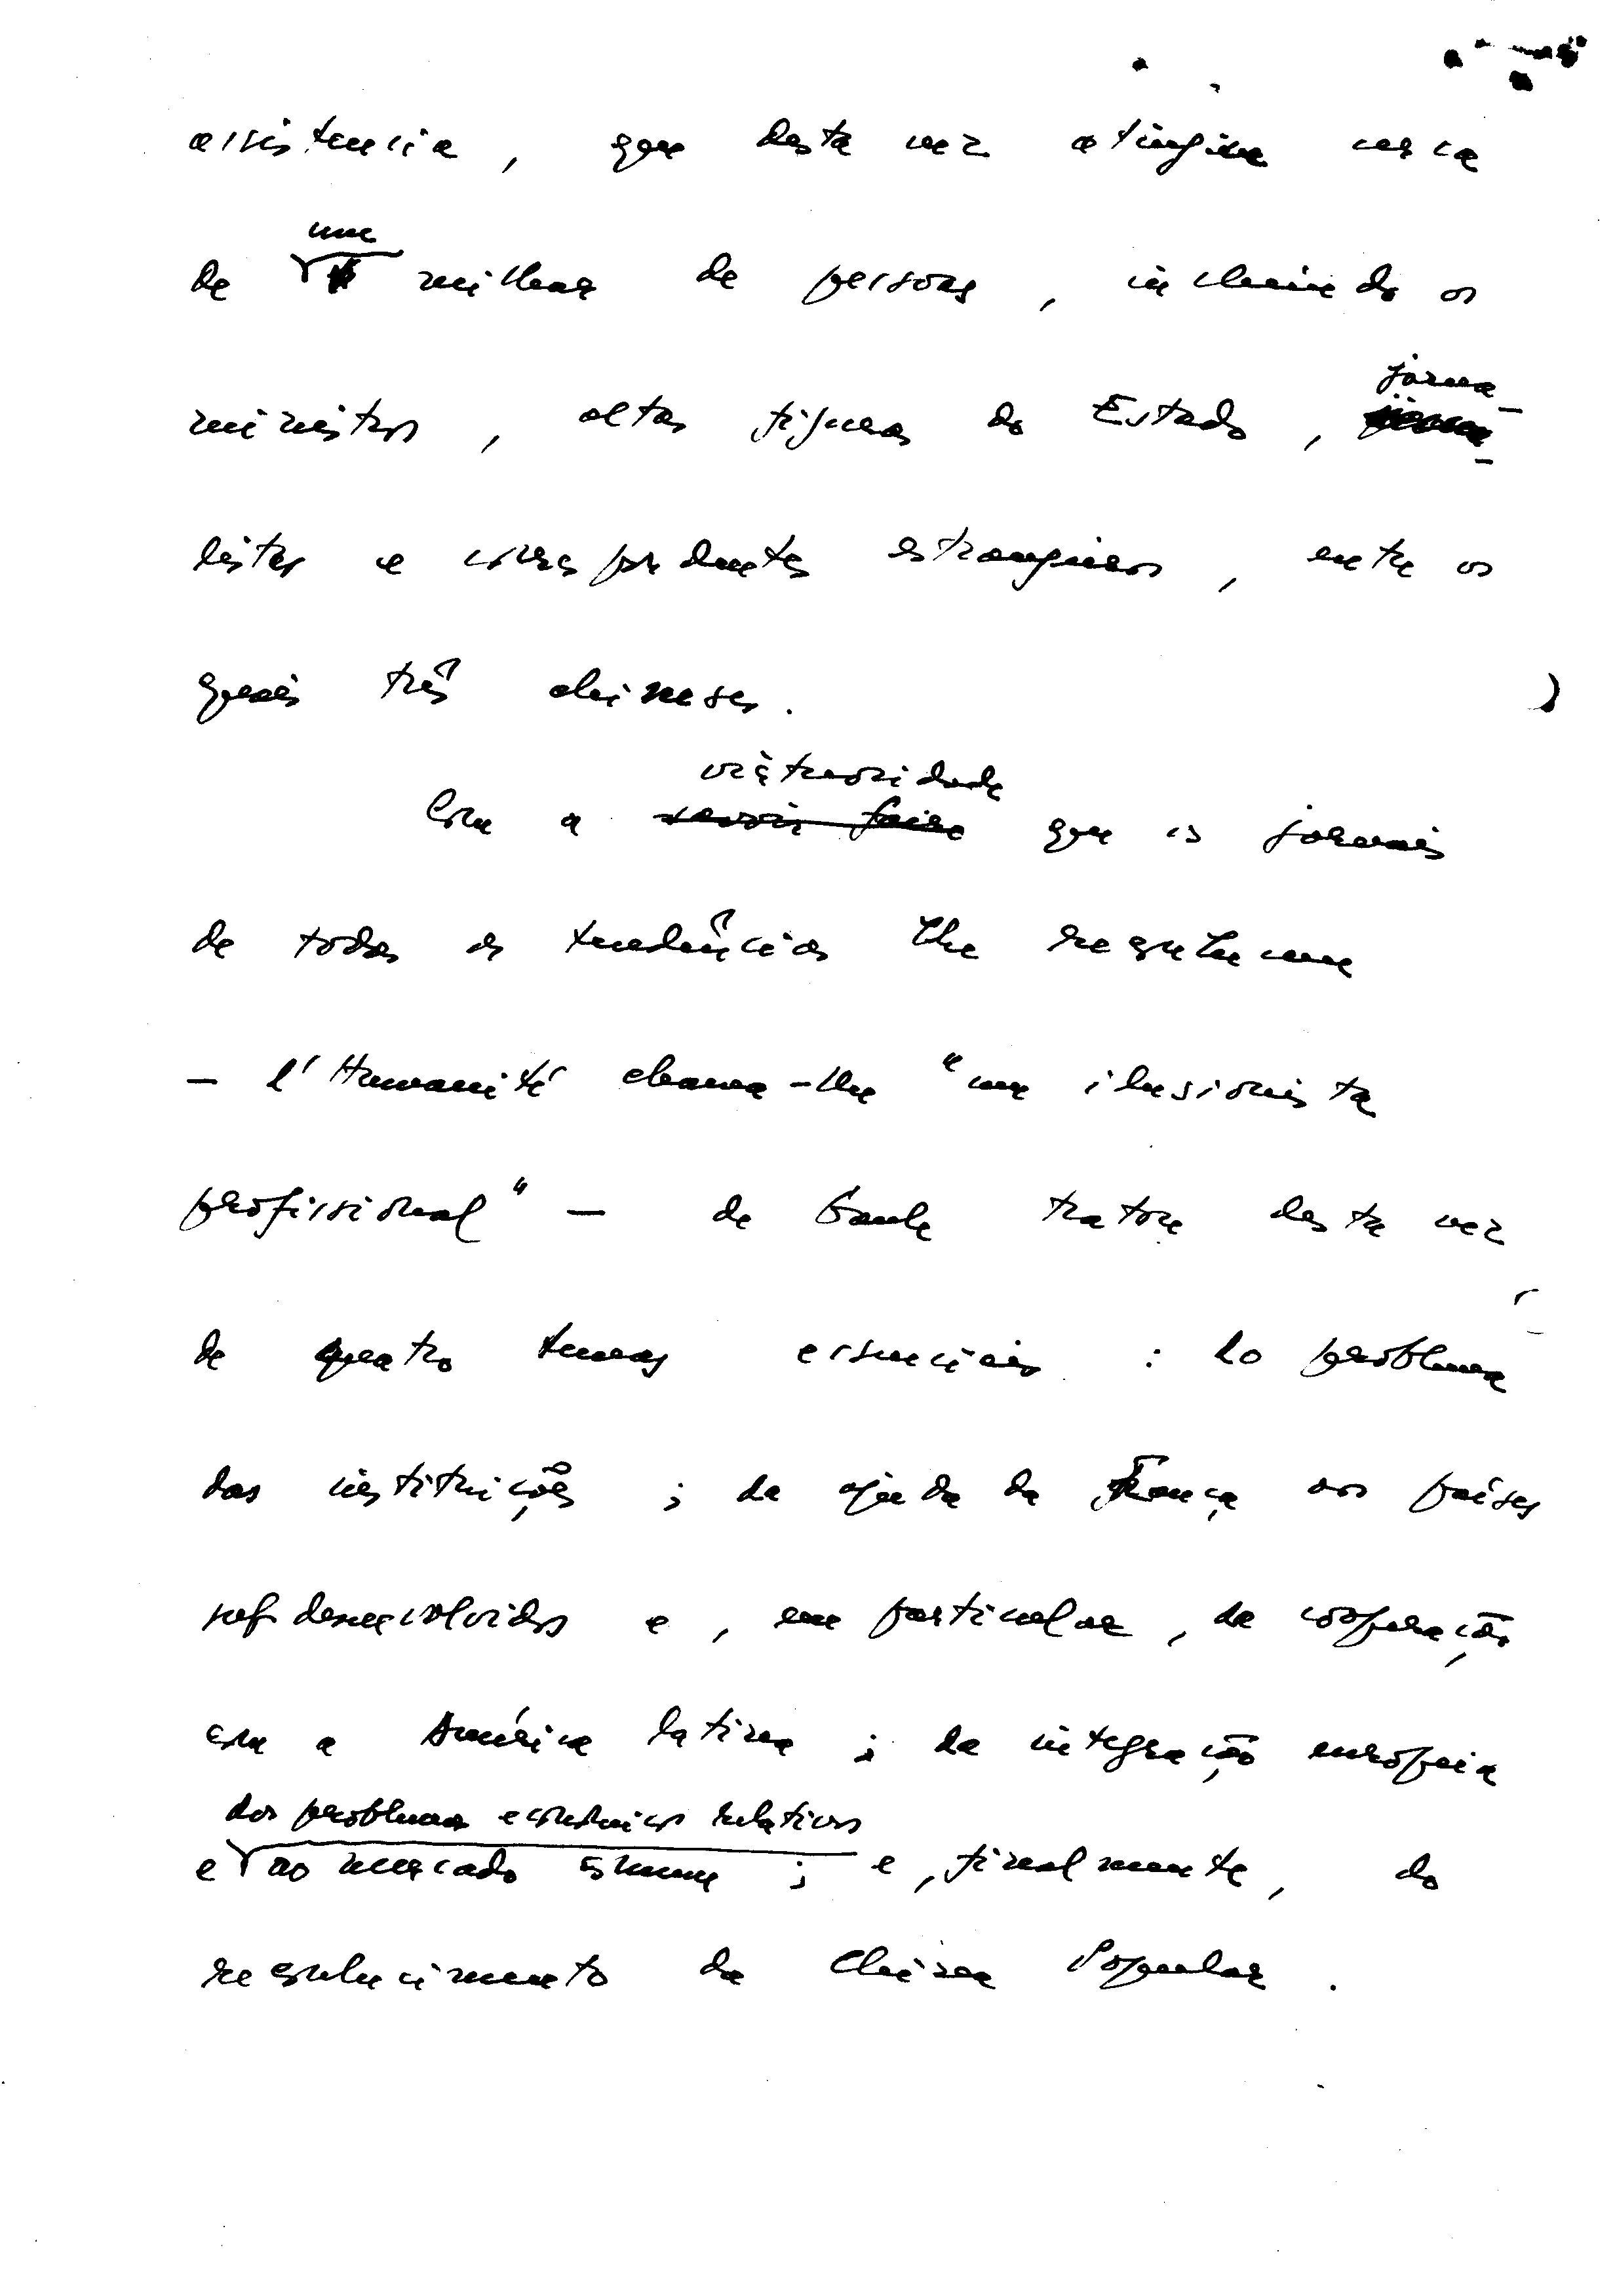 assistencia, que desta vez atingiu cerca
um
de milhar de pessoas, incluindo os
jorna-
ministros, altas figuras do Estado,
listas e correspondentes estrangeiros, entre os
quais três chineses.
mestria
Com a savoir faire que os jornais
de todas as tendências lhe reconhecem
- l'Humanité chama-lhe "um ilusionista
profissional" - de Gaulle tratou desta vez
de quatro temas essenciais : do problema
das instituições ; da ajuda da França aos países
subdesenvolvidos e, em particular, da cooperação
com a América latina ; da integração europeia
dos problemas económicos relativos
e ao mercado comum ; e, finalmente, do
reconhecimento da China Popular.